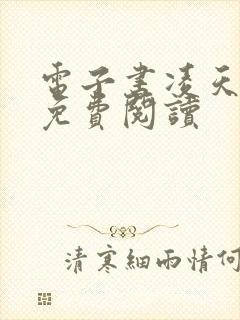 電子書凌天
免費閱讀
清寒細雨情何